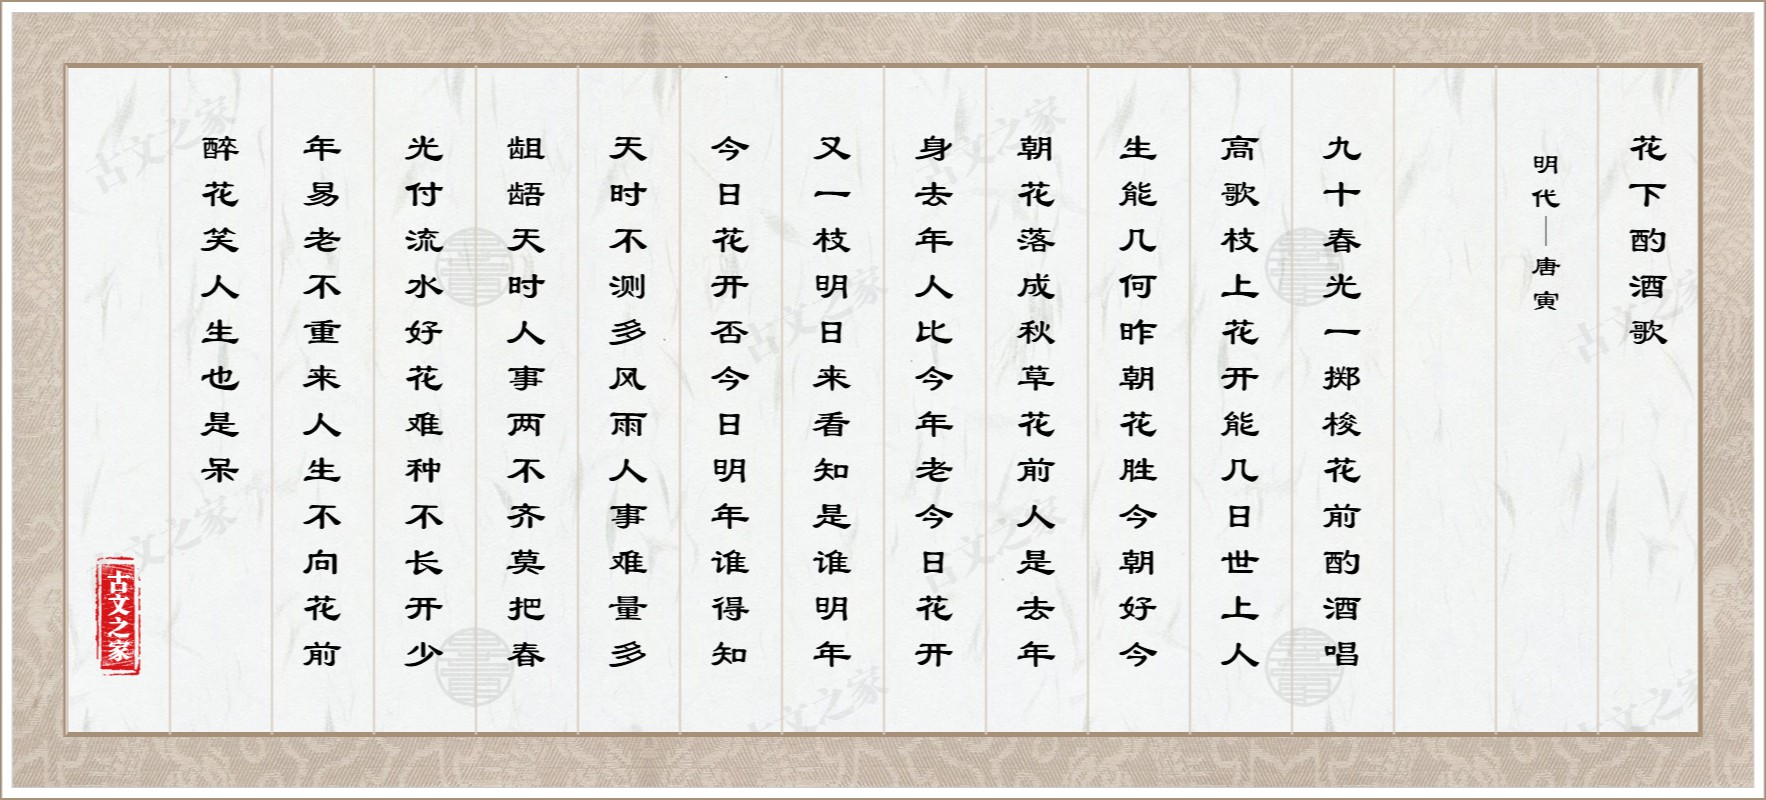 花下酌酒歌
明代—唐寅
九十春光一掷梭花前酌酒唱
高歌枝上花开能几日世上人
生能几何昨朝花胜今朝好今
朝花落成秋草花前人是去年
身去年人比今年老今日花开
又一枝明日来看知是谁明年
今日花开否今日明年谁得知
天时不测多风雨人事难量多
龃龉天时人事两不齐莫把春
光付流水好花难种不长开少
年易老不重来人生不向花前
醉花笑人生也是呆
古文之家